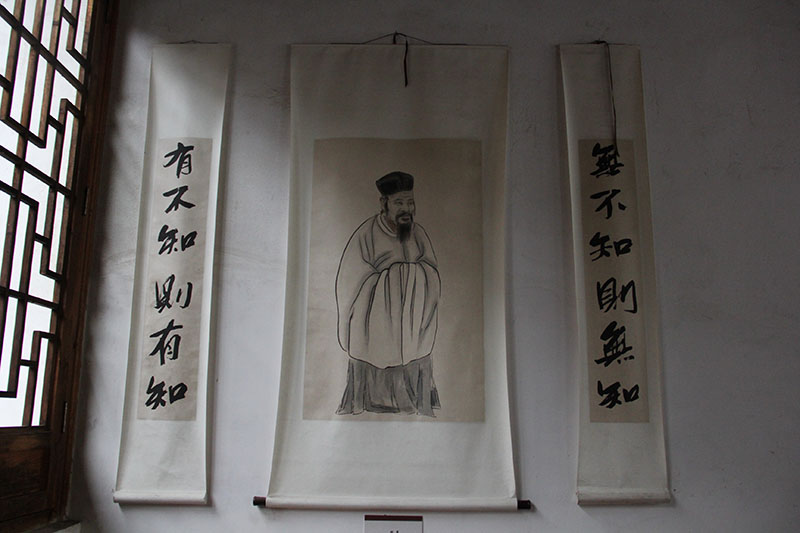 有不知則有知
無不知則無知